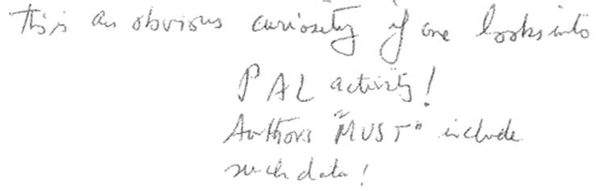 This is an obvious curiosity if one looks into
PAL activity!
Authors "MUST" include
such data!